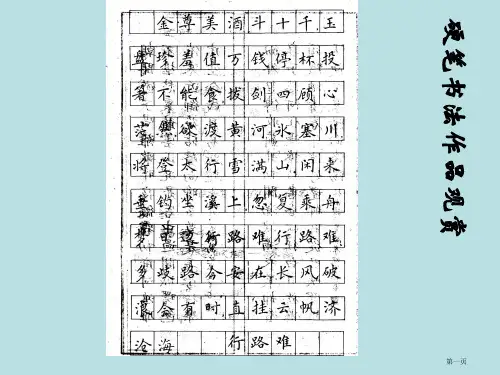 硬笔书法作品观赏
金尊美酒斗十千玉
盘珍羞值万钱停杯投
箸不能食拔剑四顾心
茫然欲渡黄河冰塞川
将登太行雪满山闲来
垂钓坐溪上忽复乘舟
梦日边行路难行路难
多歧路今安在长风破
浪会有时直挂云帆济
沧海 行路难
第一页